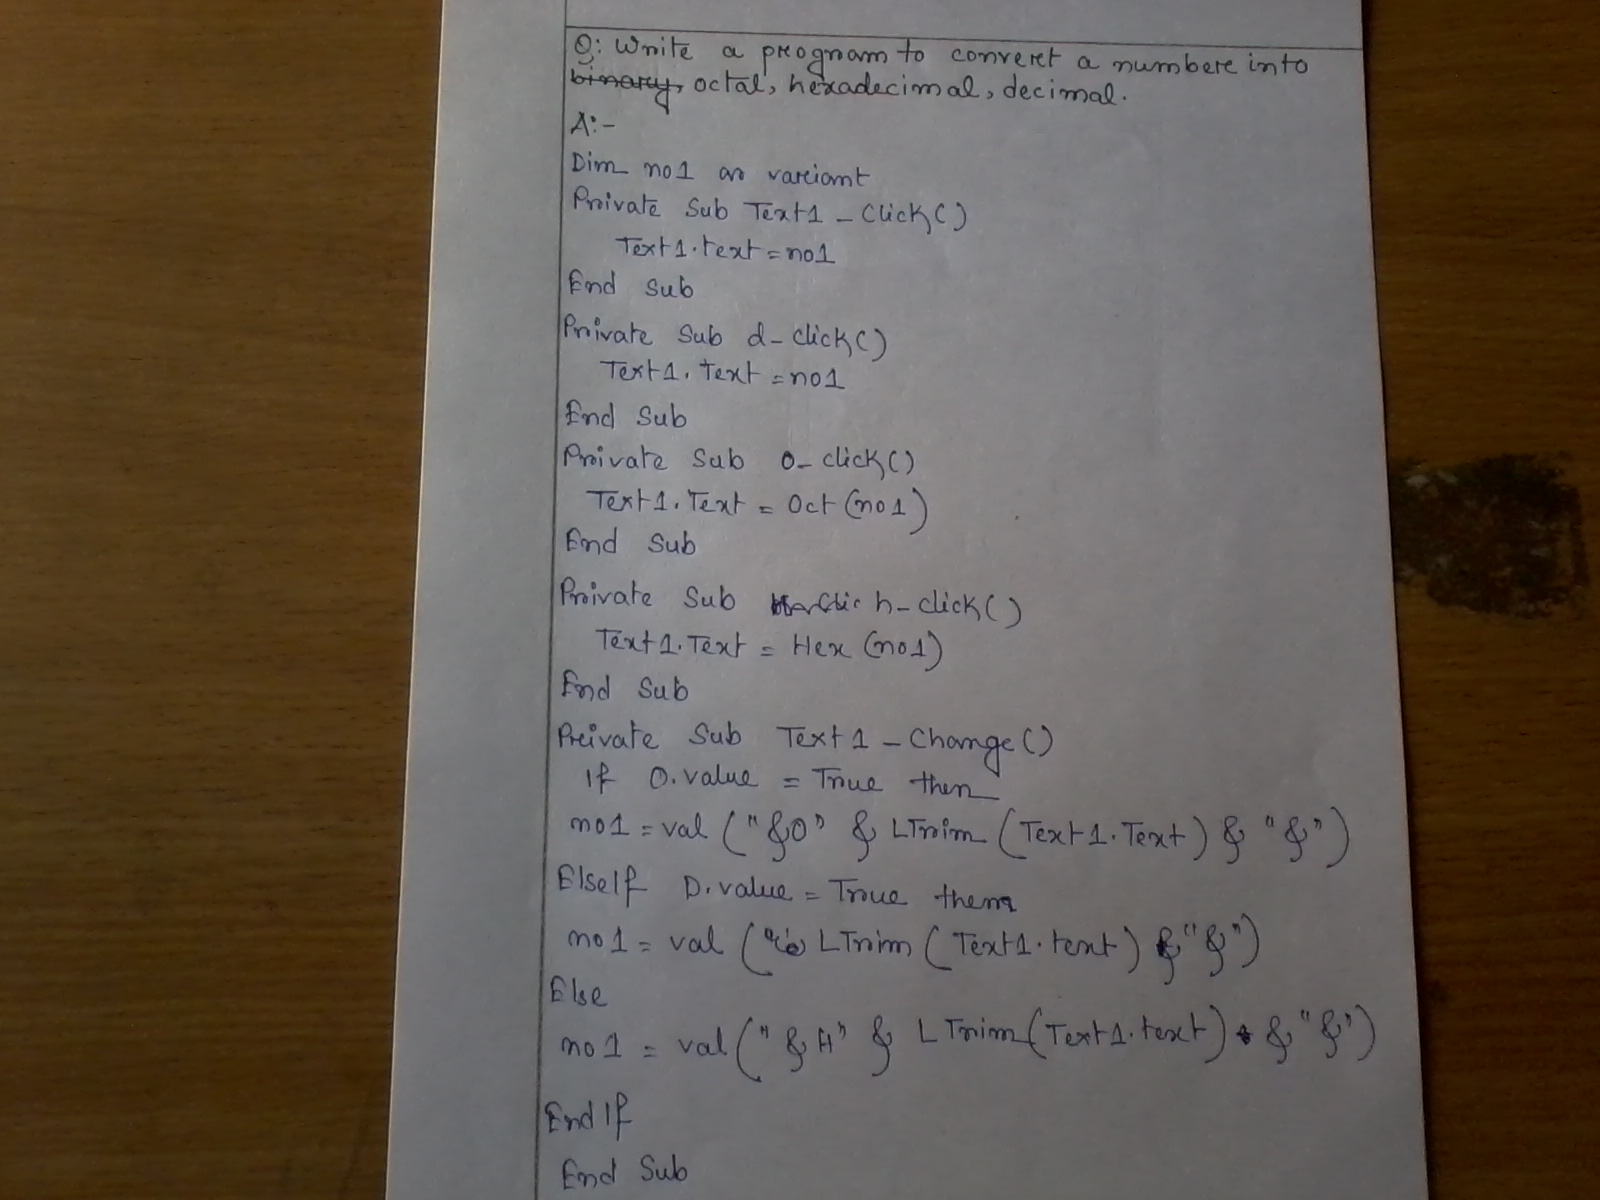 Q: Write a program to convert a number into
binary, octal, hexadecimal, decimal.
A:-
Dim no1 as variant
Private Sub Text1_Click()
Text1.text = no1
End Sub
Private Sub d_click()
Text1.text = no1
End Sub
Private Sub o_click()
Text1.Text = Oct (no1)
End Sub
Private Sub h_click()
Text1.Text = Hex (no1)
End Sub
Private Sub Text1_Change()
If O.value = True then
no1 = val ("&O" & LTrim (Text1.Text) & "&")
ElseIf D.value = True then
no1 = val ( LTrim (Text1.text) & "&")
Else
no1 = val ("&H" & LTrim (Text1.text) & "&")
End If
End Sub